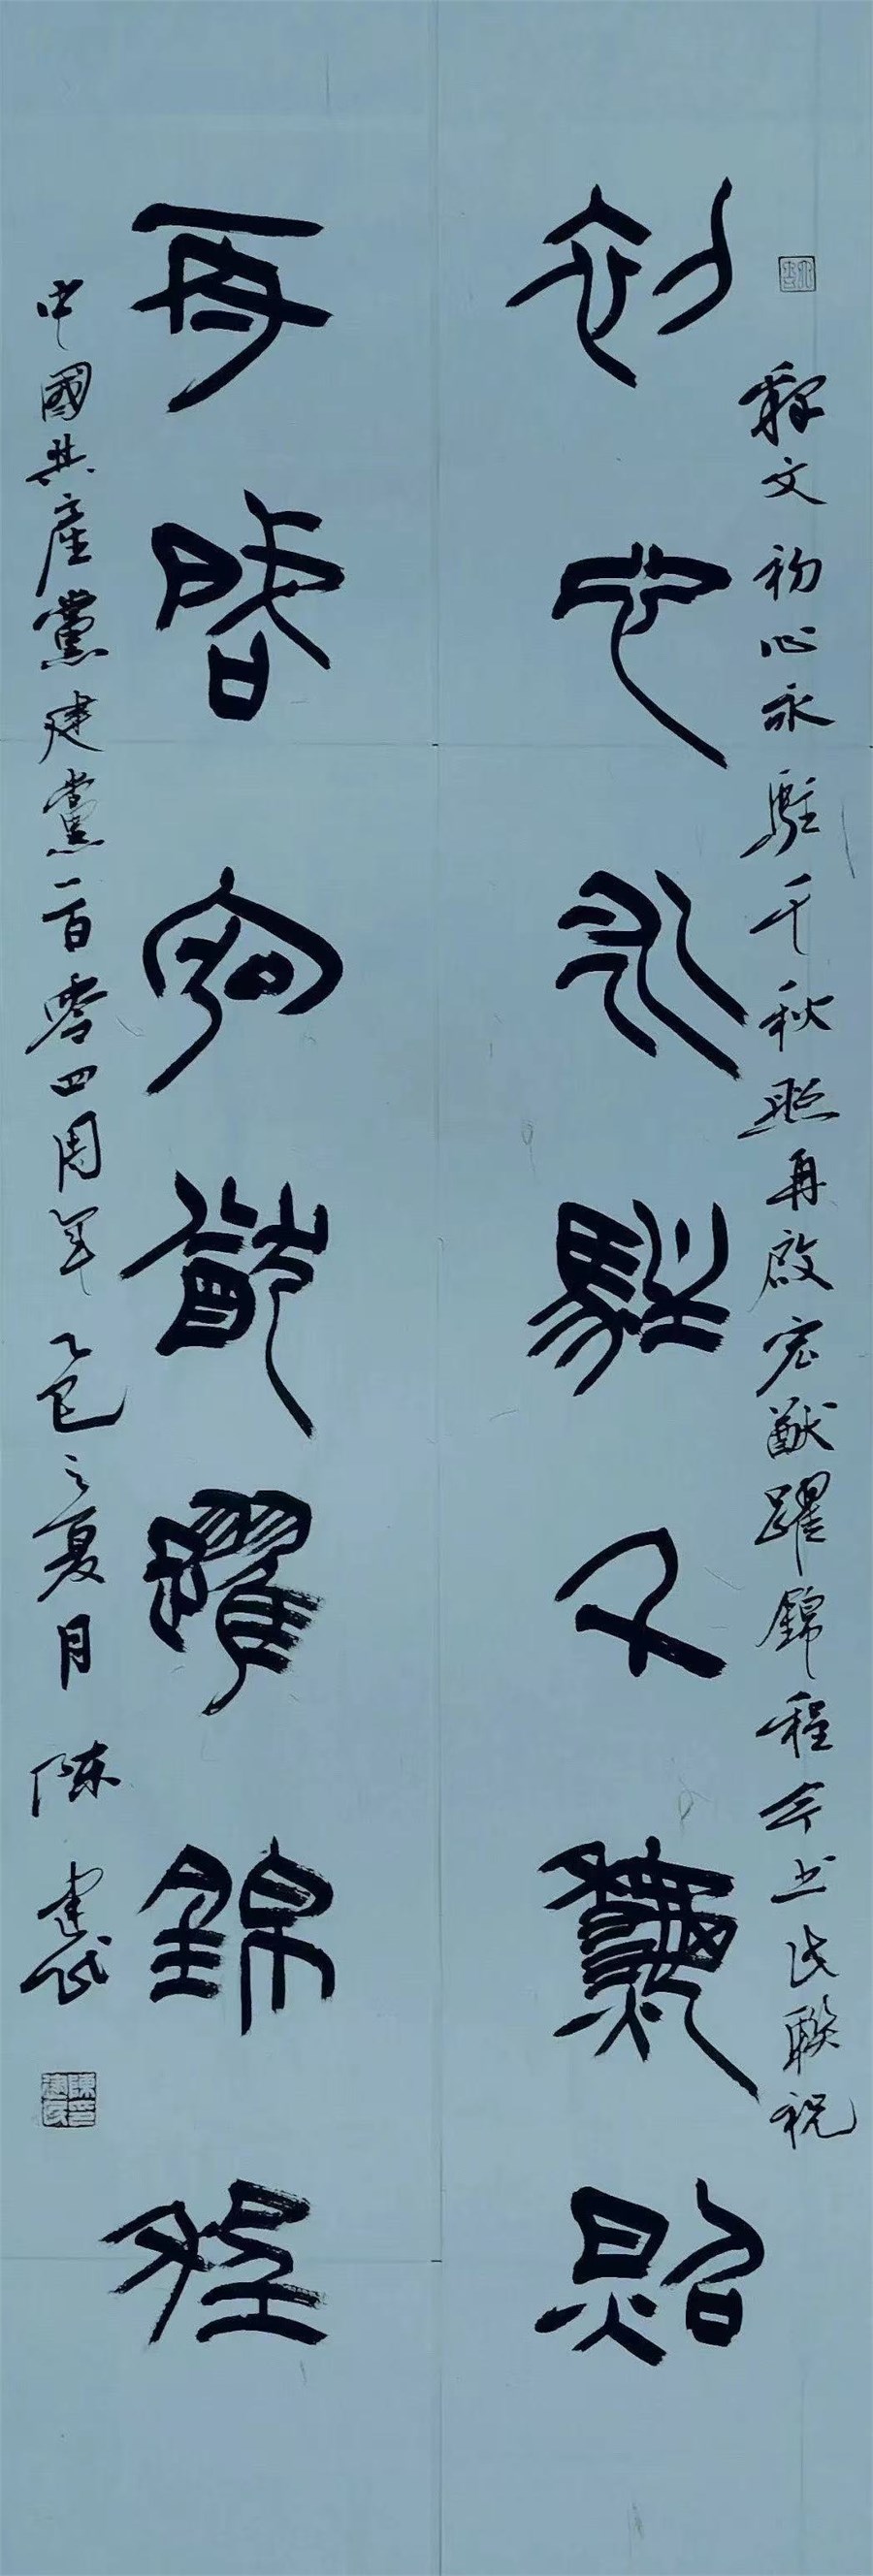 釋文初心永駐千秋照再啟宏猷躍錦程今書此聯祝
初心永駐千秋照
再啟宏猷躍錦程
中國共產黨建黨一百零四周年乙巳之夏月陳建民